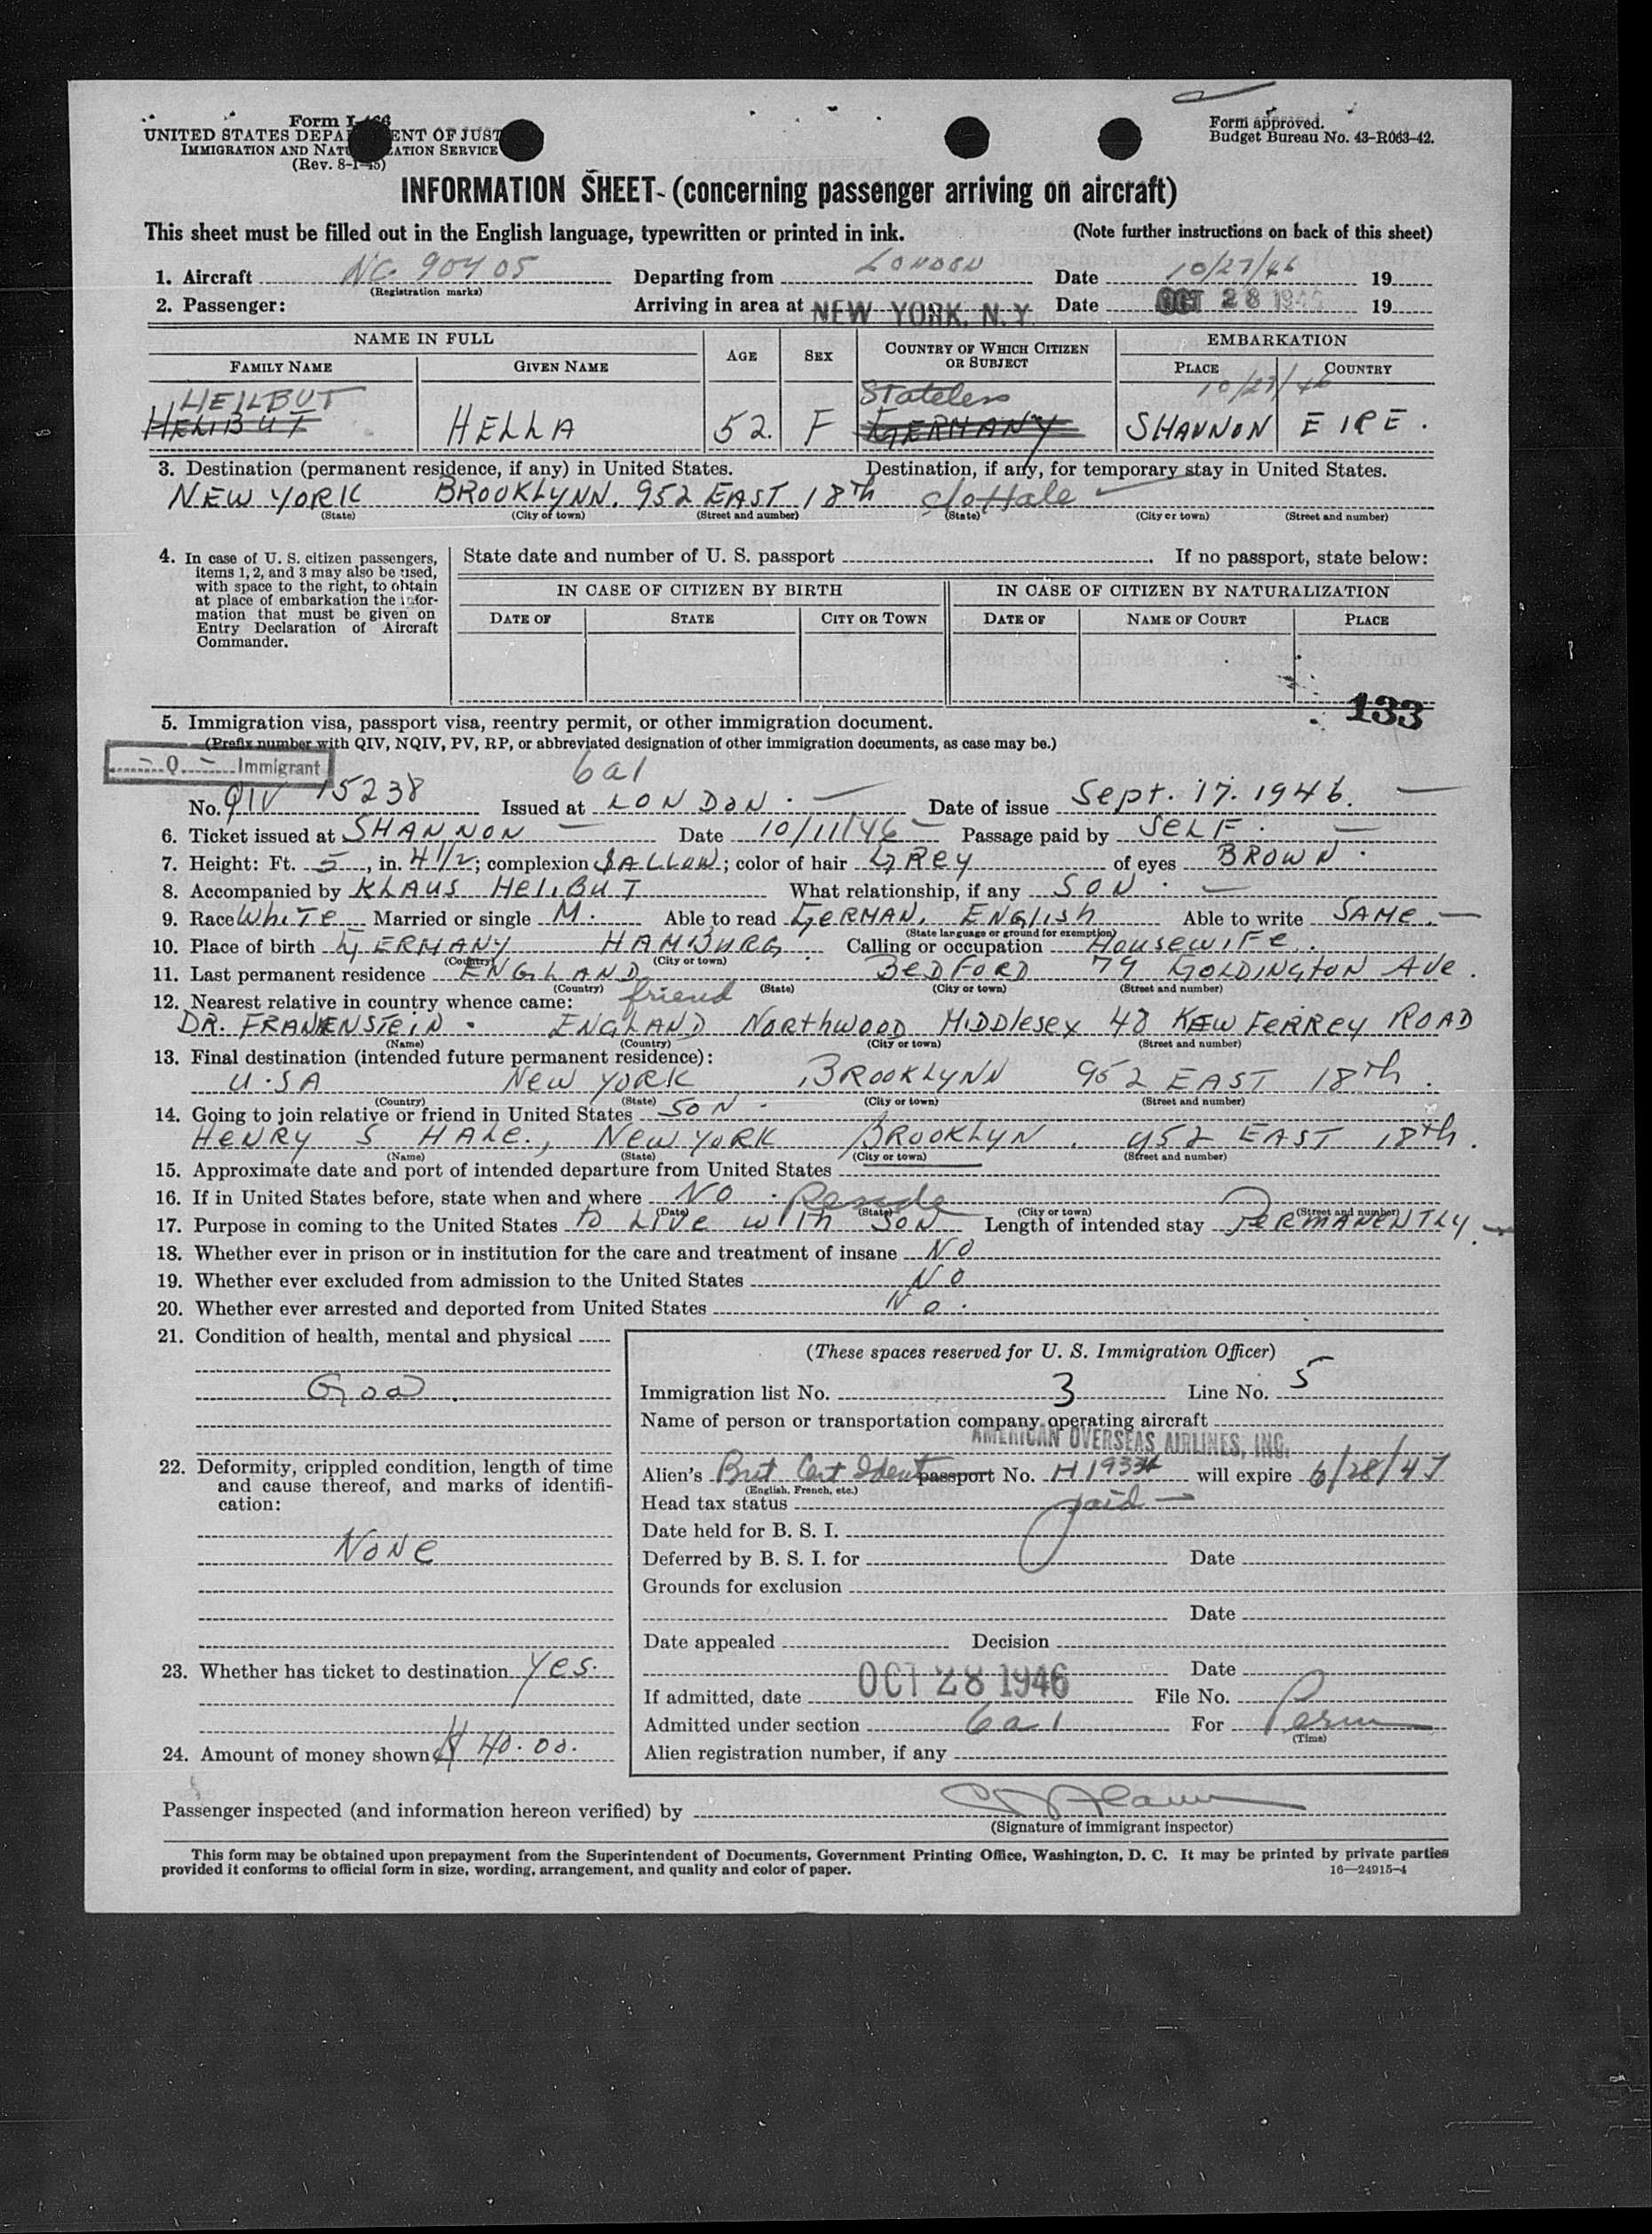 Form I-466
UNITED STATES DEPARTMENT OF JUSTICE
IMMIGRATION AND NATURALIZATION SERVICE
(Rev. 8-1-45)
Form approved.
Budget Bureau No. 43-R063-42.
INFORMATION SHEET (concerning passenger arriving on aircraft)
This sheet must be filled out in the English language, typewritten or printed in ink. (Note further instructions on back of this sheet)
1. Aircraft NC 90905 Departing from LONDON Date 10/27/46 19
(Registration marks)
2. Passenger: Arriving in area at NEW YORK, N.Y. Date OCT 28 1946 19
NAME IN FULL AGE SEX COUNTRY OF WHICH CITIZEN OR SUBJECT EMBARKATION
FAMILY NAME GIVEN NAME PLACE COUNTRY
HEILBUT Stateless 10/27/46
HELIBUT HELLA 52. F GERMANY SHANNON EIRE.
3. Destination (permanent residence, if any) in United States. Destination, if any, for temporary stay in United States.
NEW YORK BROOKLYNN. 952 EAST 18th c/o Hale
(State) (City of town) (Street and number) (State) (City or town) (Street and number)
4. In case of U. S. citizen passengers, items 1, 2, and 3 may also be used, with space to the right, to obtain at place of embarkation the information that must be given on Entry Declaration of Aircraft Commander.
State date and number of U. S. passport . If no passport, state below:
IN CASE OF CITIZEN BY BIRTH IN CASE OF CITIZEN BY NATURALIZATION
DATE OF STATE CITY OR TOWN DATE OF NAME OF COURT PLACE
133
5. Immigration visa, passport visa, reentry permit, or other immigration document.
(Prefix number with QIV, NQIV, PV, RP, or abbreviated designation of other immigration documents, as case may be.)
Q Immigrant 6a1
No. QIV 15238 Issued at LONDON. Date of issue Sept. 17. 1946.
6. Ticket issued at SHANNON Date 10/11/46 Passage paid by SELF.
7. Height: Ft. 5, in. 4 1/2; complexion SALLOW; color of hair GREY of eyes BROWN.
8. Accompanied by KLAUS HELIBUT What relationship, if any SON.
9. Race WHITE Married or single M. Able to read GERMAN, ENGLISH Able to write SAME.
(State language or ground for exemption)
10. Place of birth GERMANY HAMBURG. Calling or occupation HOUSEWIFE.
(Country) (City or town)
11. Last permanent residence ENGLAND BEDFORD 79 GOLDINGTON AVE.
(Country) (State) (City or town) (Street and number)
12. Nearest relative in country whence came: friend
DR. FRANKENSTEIN. ENGLAND NORTHWOOD MIDDLESEX 48 KEW FERREY ROAD
(Name) (Country) (City or town) (Street and number)
13. Final destination (intended future permanent residence):
U.S.A NEW YORK BROOKLYNN 952 EAST 18th.
(Country) (State) (City or town) (Street and number)
14. Going to join relative or friend in United States SON.
HENRY S HALE., NEW YORK BROOKLYN. 952 EAST 18th.
(Name) (State) (City or town) (Street and number)
15. Approximate date and port of intended departure from United States
16. If in United States before, state when and where NO. Reside
(Date) (State) (City or town) (Street and number)
17. Purpose in coming to the United States TO LIVE WITH SON Length of intended stay PERMANENTLY.
18. Whether ever in prison or in institution for the care and treatment of insane NO
19. Whether ever excluded from admission to the United States NO
20. Whether ever arrested and deported from United States NO.
21. Condition of health, mental and physical
Good.
22. Deformity, crippled condition, length of time and cause thereof, and marks of identification:
NONE
23. Whether has ticket to destination Yes.
24. Amount of money shown $ 40.00.
(These spaces reserved for U. S. Immigration Officer)
Immigration list No. 3 Line No. 5
Name of person or transportation company operating aircraft
AMERICAN OVERSEAS AIRLINES, INC.
Alien's Brit Cert Ident passport No. will expire 6/28/47
(English, French, etc.)
Head tax status paid
Date held for B. S. I.
Deferred by B. S. I. for Date
Grounds for exclusion
Date
Date appealed Decision
Date
If admitted, date OCT 28 1946 File No.
Admitted under section 6a1 For Perm
(Time)
Alien registration number, if any
Passenger inspected (and information hereon verified) by
(Signature of immigrant inspector)
This form may be obtained upon prepayment from the Superintendent of Documents, Government Printing Office, Washington, D. C. It may be printed by private parties
provided it conforms to official form in size, wording, arrangement, and quality and color of paper. 16—24915-4